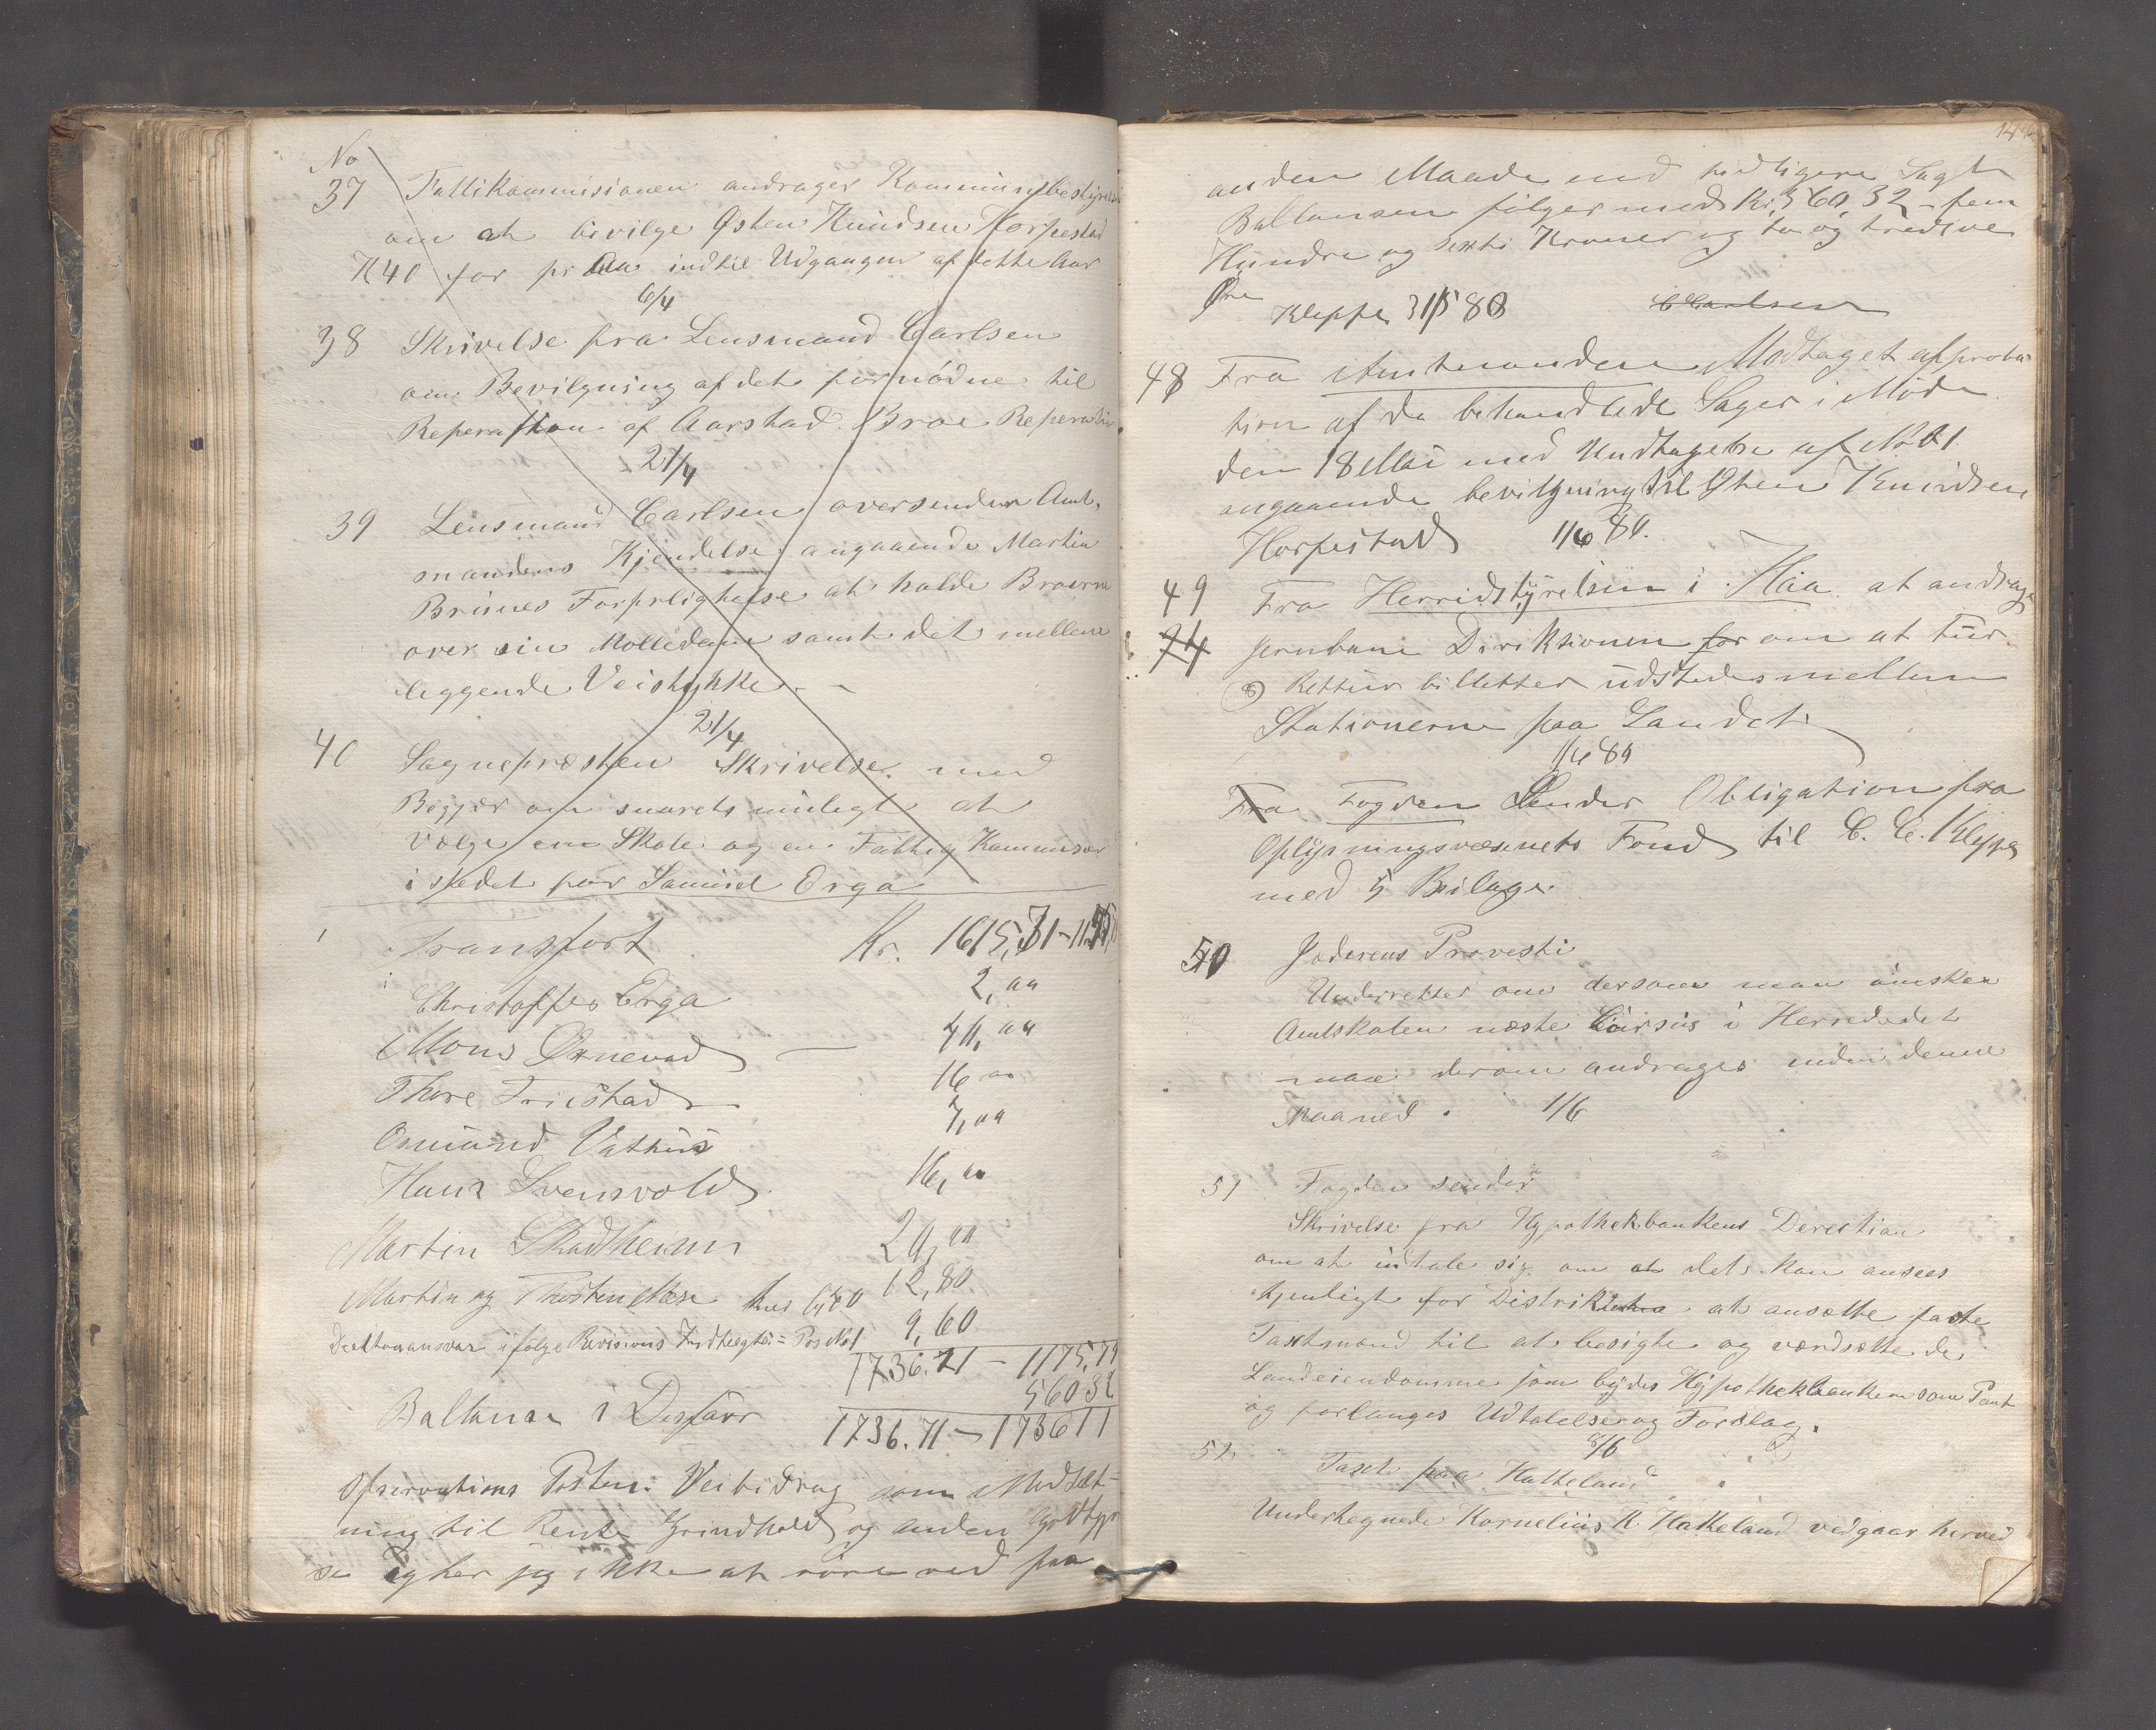 No
37 Fattikommisionen andrager Kommunebestyrelse
om at bevilge Østen Knudsen Horpestad
K 40 for pr Aa indtil Udgangen af dette Aar
6/4
38 Skrivelse fra Lensmand Carlsen
om Bevilgning af det fornødne til
Reperastion af Aarstad Broe Reperation
21/4
39 Lensmand Carlsen oversender Amt,
mandens Kjendelse angaaende Martin
Brunes Forpeligtelse at holde Broerne
over sin Mølledam samt det mellem
leggende Veistykke
21/4
40 Sognepræsten Skrivelse med
Begjær om snarets muligt at
vælge en Skole og en Fattig Kommisær
i stedet for Samuel Orga
Transport Kr. 1615,31 -
Christoffer Erga 2,00
Mons Øxnevad 40,00
Thore Friestad 16 00
Osmund Vathus 7,00
Hans Svensvold 16,00
Martin Skadheim 20,00
Martin og Thosten Næse 12,80
Decitonansvar ifølge Revisions Indtlægtsi = Pos No 1 9,60
1736.71 - 1175,79
56032
Ballanse i Desfavr 1736.71 - 173611
Opservations Posten: Veibidrag som Nedsæt-
ning til Rente Grindhold og anden Godtgjo
se Egher jeg ikke at røre ved paa
anden Maade end tidligere Sagt
Ballansen følger med Kr. 560,32 - fem
Hundre og sexti Kroner og to og tredive
Øre
Kleppe 31/5 80 CCarlsen
48 Fra Amtmanden Modtaget approba
tion af de behandlede Sager i Møde
den 18 Mai med Undtagelse af No 21
angaaende bevilgning til Østen Knudsen
Horpestad 1/6 80.
49 Fra Herridstyrelsen i Haa at andrage
24 Jernbane Diriksionen for om at tur
og Rettur billetter udstedes mellem
Stationerne paa Landet
1/6 80
Fra Fogden Sender Obligation fra
Oplysningsvæsnets Fond til C. C. Kleppe
med 5 Beilage.
50 Jæderens Provesti
Underretter om dersom man ønsker
Amtskolen næste Cursus i Herrededet
maa derom andrages inden denne
Maaned. 1/6
51 Fogden sender
Skrivelse fra Hypothekbankens Derection
om at udtale sig om at det kan ansees
tjenligt for Distriktetne at ansætte faste
Taxtmænd til at besigte og værdsætte de
Landeiendomme som bydes Hypothekbanken som Pant
og forlanges Udtalelse og Forslag.
8/6
52 Taxt paa Hatteland
Undertegnede Kornelius K. Hatteland vedgaar herved